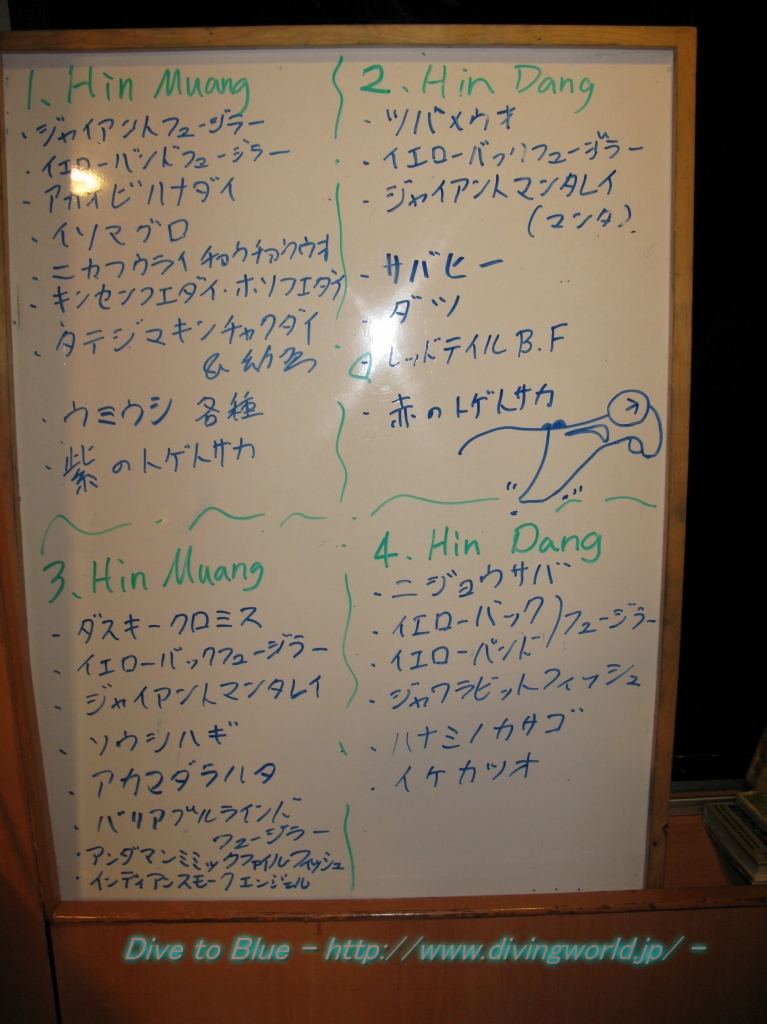 1. Hin Muang
・ジャイアントフュージラー
・イエローバンドフュージラー
・アカオビハナダイ
・イソマグロ
・ニカフウライチョウチョウウオ
・キンセンフエダイ・ホソフエダイ
・タテジマキンチャクダイ
& 幼魚
・ウミウシ 各種
・紫のトゲトサカ
2. Hin Dang
・ツバメウオ
・イエローバックフュージラー
・ジャイアントマンタレイ
(マンタ)
・サバヒー
・ダツ
・レッドテイル B.F
・赤のトゲトサカ
3. Hin Muang
・ダスキークロミス
・イエローバックフュージラー
・ジャイアントマンタレイ
・ソウシハギ
・アカマダラハタ
・バリアブルラインド
フュージラー
・アンダマンミミックファイルフィッシュ
・インディアンスモークエンジェル
4. Hin Dang
・ニジョウサバ
・イエローバック
・イエローバンド
フュージラー
・ジャワラビットフィッシュ
・ハナミノカサゴ
・イケカツオ
Dive to Blue - http://www.divingworld.jp/ -